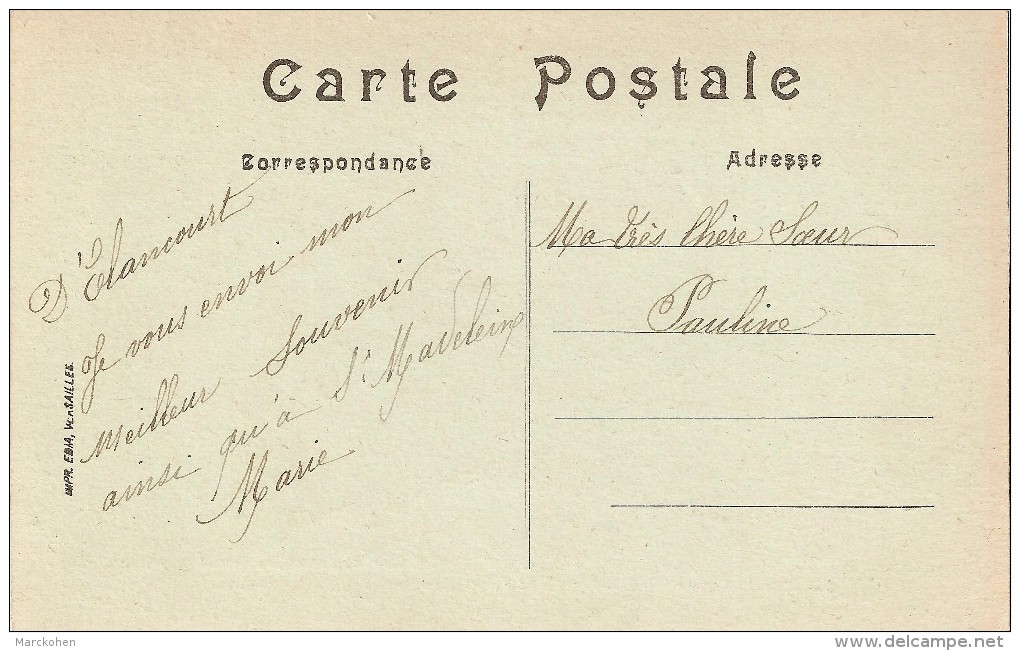 Carte Postale
Correspondance
Adresse
D'Elancourt
Je vous envoi mon
meilleur Souvenir
ainsi qu'à St Madeleine
Marie
Ma très Chère Sœur
Pauline
IMPR. EDIA, VERSAILLES.
Marckohen
www.delcampe.net